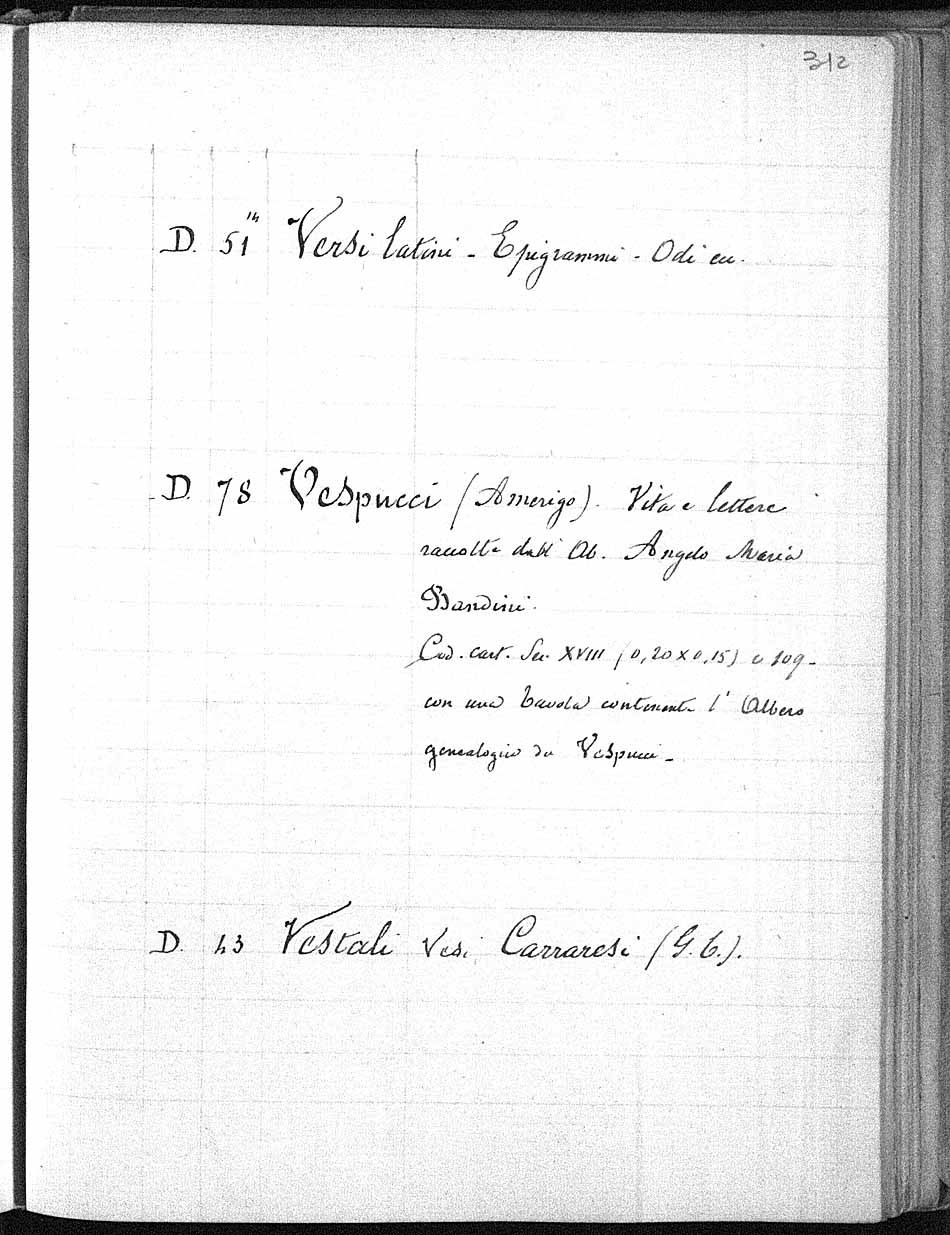 312
D. 51 Versi latini - Epigrammi - Odi ecc.
D. 78 Vespucci (Amerigo). Vita e lettere
raccolte dall' Ab. Angelo Maria
Bandini.
Cod. cart. Sec. XVIII (0,20 x 0,15) c 109-
con una tavola contenente l' Albero
genealogico de Vespucci -
D. 43 Vestali Vedi Carraresi (G. C.).